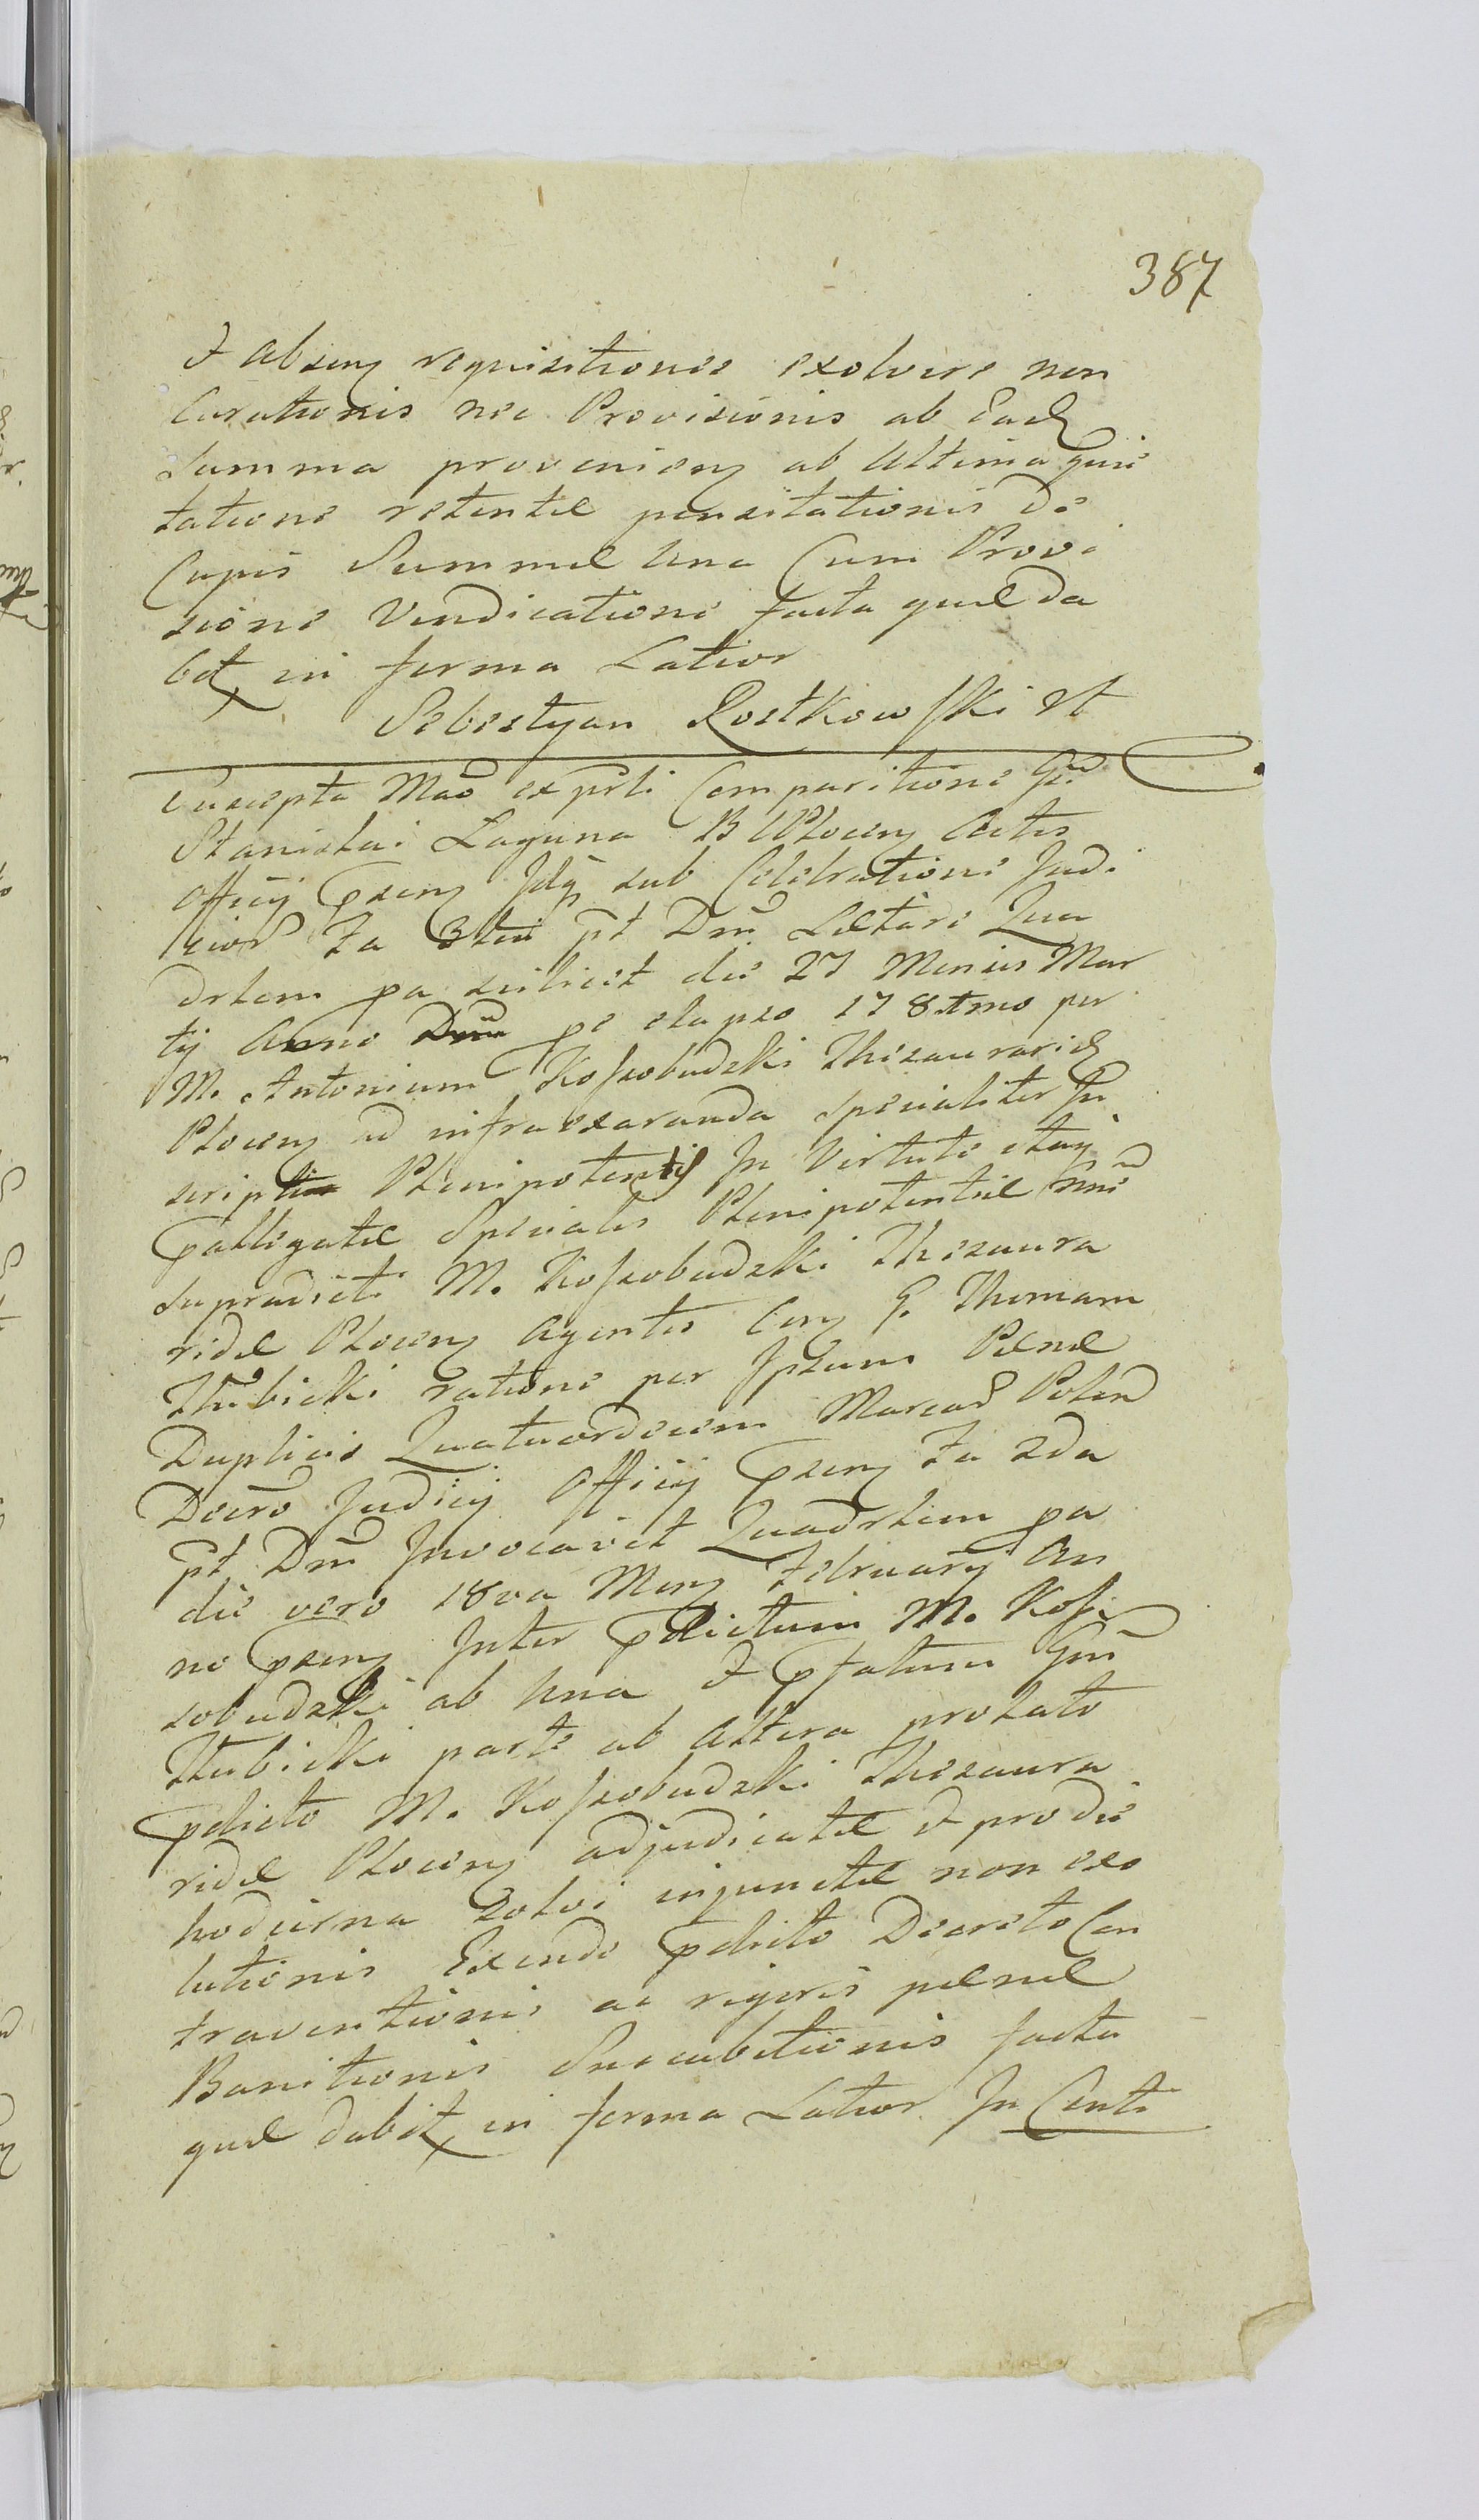 387
& absenq requisitionee exolvere non
Curationis nec Provisionis ab Eadq
Summa provenienq ab Ultima quie
tatione retentæ pensitationis de
Cupis Summæ una Cum Provi
sione Vendicatione facta quæ da
bit in forma Latior
Sebestyan Rostkowſki
Suscepta Mão ex prti Comparitione
Stanislai Laguna B Plocenq Actis
Officij pzenq sub Celebratione Judi
cior fa 3tia pt Dm̃ Lætare Qua
drlem pa scilicet die 27 Mensis Mar
tij Anno pe elapso 178tmo per
M. Antonium Koſsobudzki Thesaurarid
Plocenq ad infraexaranda Specialiter In
script Plenipotentis In Virtute
pallegatæ Specialis Plenipotentiæ nõie
Supradicti M. Koſsobudzki Thesaura
ridæ Plocenq Agentis Conq G. Thomam
Hubicki ratione per Ipsum Pænæ
Duplicis Quatuordecem Marcar Polon
Decro Judicij Officij pzenq fa 2da
pt Dm̃ Invocavit Quadrlem pa
die vero 18va Menq February An
no pzenq Inter pdictum M. Koſ
sobudzki ab una & pfatum Gm̃
Hubicki parte ab altera prolato
pdicto M. Koſsobudzki Thesaura
ridæ Plocenq adjudicatæ & pro die
hodierna Solvi injunctæ non exo
lutionis Exinde pdicto Decreto Con
traventionis ac rigoris pænæ
Banitionis Succubitionis facta
quæ dabit in forma Latior In Conti